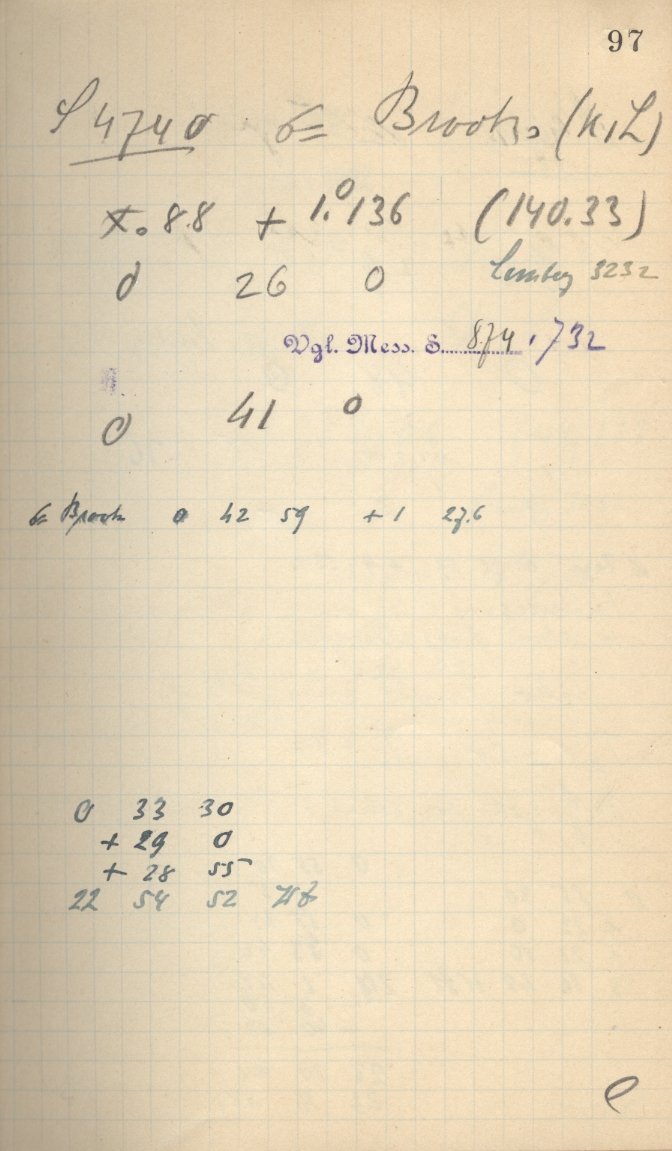 97
S 4740 6= Brooks (K,L)
x. 8.8 + 1.°136 (140.33)
0 26 0 3232
Vgl. Mess. S. 874, 732
0 41 0
6= Brooks 0 42 59 + 1 27.6
0 33 30
+ 29 0
+ 28 55
22 54 52